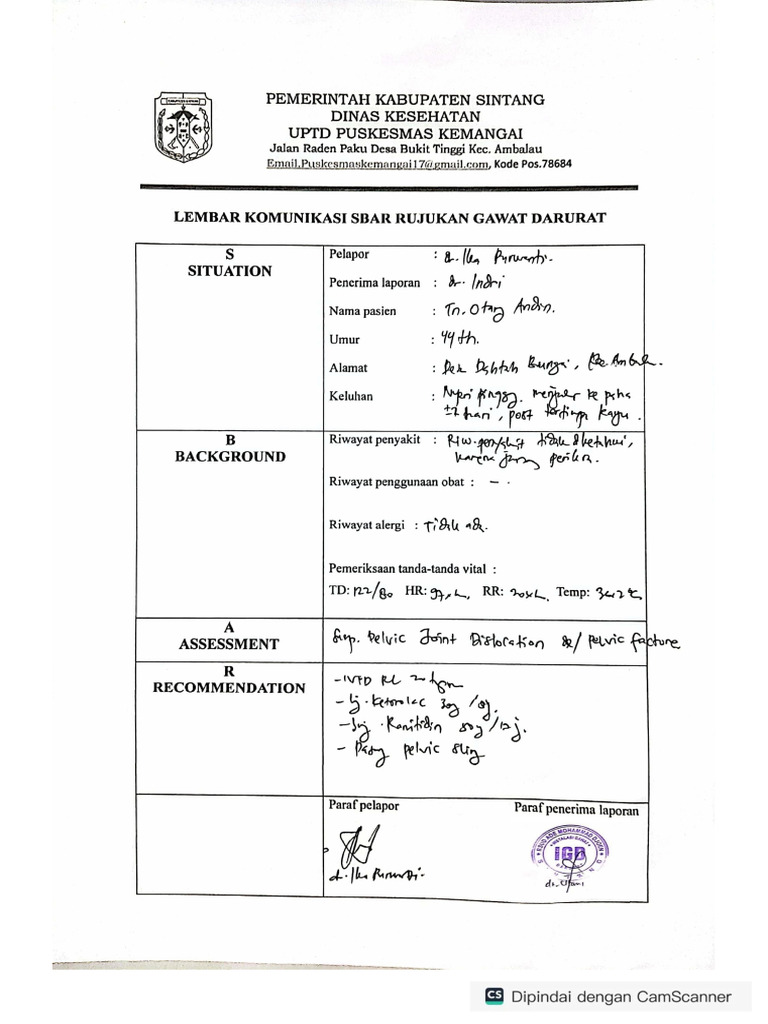 PEMERINTAH KABUPATEN SINTANG
DINAS KESEHATAN
UPTD PUSKESMAS KEMANGAI
Jalan Raden Paku Desa Bukit Tinggi Kec. Ambalau
Email.Puskesmaskemangai17@gmail.com, Kode Pos.78684
LEMBAR KOMUNIKASI SBAR RUJUKAN GAWAT DARURAT
S
SITUATION
Pelapor : dr. Ika Purwanti.
Penerima laporan : dr. Indri
Nama pasien : Tn. Otang Andin.
Umur : 44 th.
Alamat :
Keluhan : Nyeri pinggang. menjalar ke paha
hari, post tertimpa kayu.
B
BACKGROUND
Riwayat penyakit : Riw. penyakit tidak diketahui,
karena jarang periksa.
Riwayat penggunaan obat : -
Riwayat alergi : Tidak ada.
Pemeriksaan tanda-tanda vital :
TD: 122/80 HR: 97x/ RR: 20x/ Temp:
A
ASSESSMENT
Susp. Pelvic Joint Dislocation pelvic facture
R
RECOMMENDATION
- IVFD RL 20 tpm
- Inj. Ketorolac /8j.
- Inj. Ranitidin /12j.
- Pasang pelvic sling
Paraf pelapor
Paraf penerima laporan
RSUD ADE MOHAMMAD DJOEN
INSTALASI GAWAT
IGD
dr. Ika Purwanti
dr. Utami
CS Dipindai dengan CamScanner